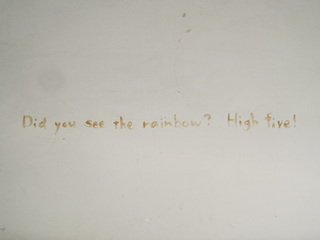 Did you see the rainbow? High five!